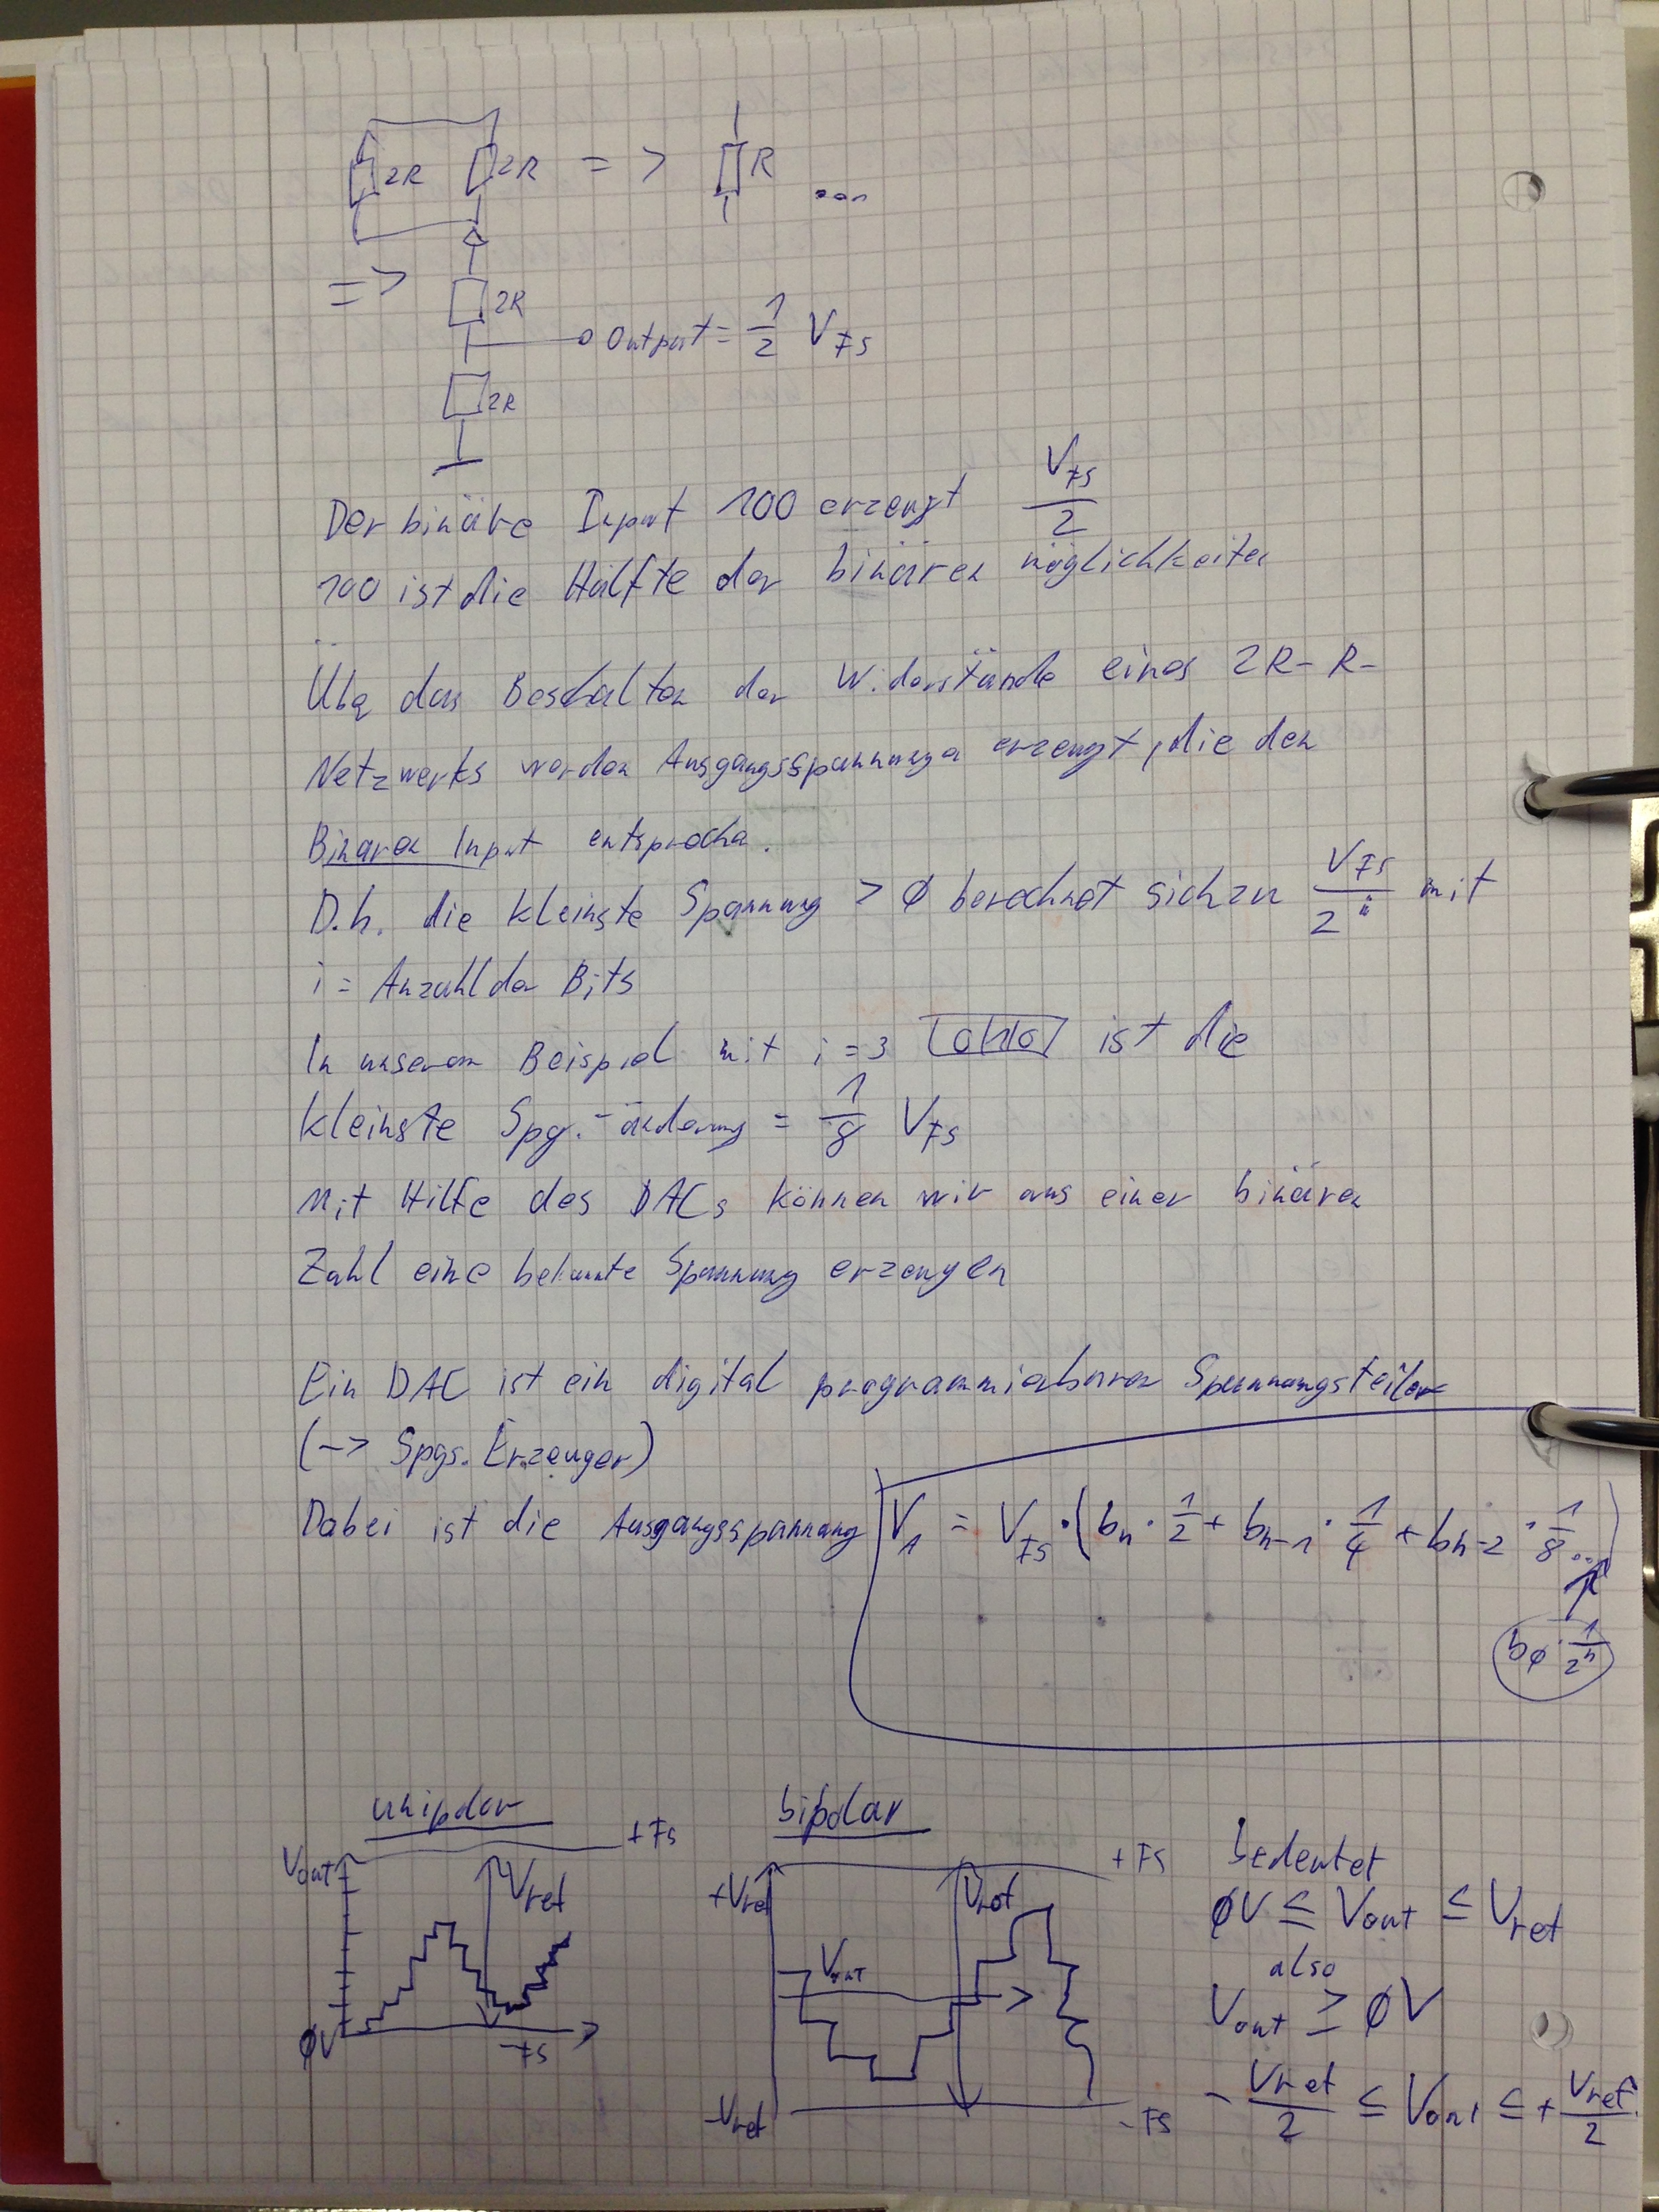 2R 2R => R ...
=> 2R
Output = 1/2 V_FS
2R
Der binäre Input 100 erzeugt V_FS/2
100 ist die Hälfte der binären möglichkeiten
Über das Beschalten der Widerstände eines 2R-R-
Netzwerks werden Ausgangsspannungen erzeugt, die den
Binären Input entsprechen.
D.h. die kleinste Spannung > ∅ berechnet sich zu V_FS/2^i mit
i = Anzahl der Bits
In unserem Beispiel mit i=3 ist die
kleinste Spg.-änderung = 1/8 V_FS
Mit Hilfe des DACs können wir aus einer binären
Zahl eine bekannte Spannung erzeugen
Ein DAC ist ein digital programmierbarer Spannungsteiler
(-> Spgs. Erzeuger)
Dabei ist die Ausgangsspannung V_1 = V_FS · (b_n · 1/2 + b_n-1 · 1/4 + b_n-2 · 1/8 ...)
b_∅ · 1/2^n
unipolar
+FS
Vout
Vref
∅V
-FS
bipolar
+FS
+Vref
Vref
Vout
-Vref
-FS
bedeutet
∅V ≤ Vout ≤ Vref
also
Vout ≥ ∅V
- Vref/2 ≤ Vout ≤ + Vref/2